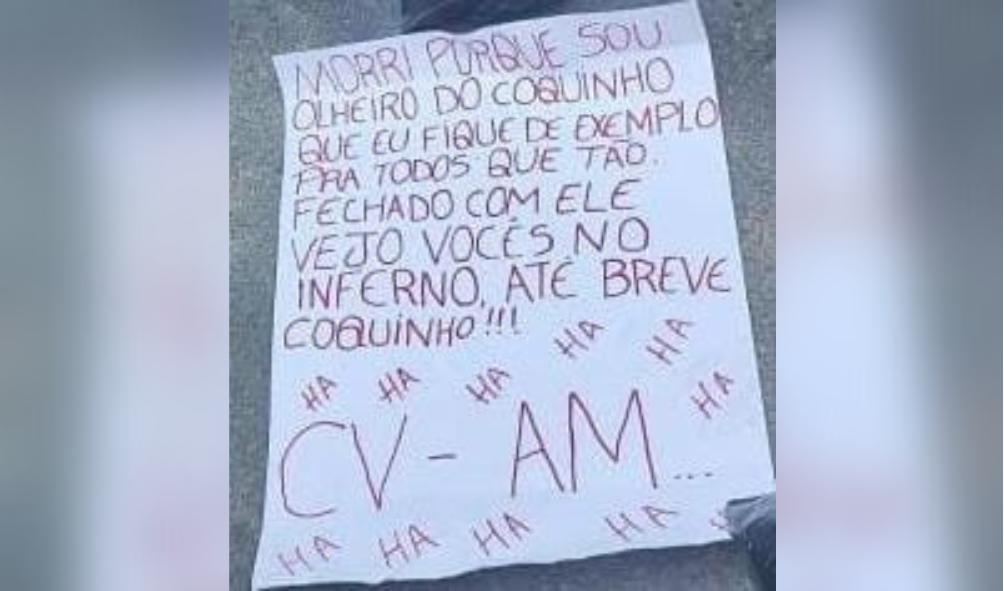 MORRI PORQUE SOU
OLHEIRO DO COQUINHO
QUE EU FIQUE DE EXEMPLO
PRA TODOS QUE TÃO.
FECHADO COM ELE
VEJO VOCÊS NO
INFERNO, ATÉ BREVE
COQUINHO!!!
HA HA HA HA HA HA
CV - AM...
HA HA HA HA